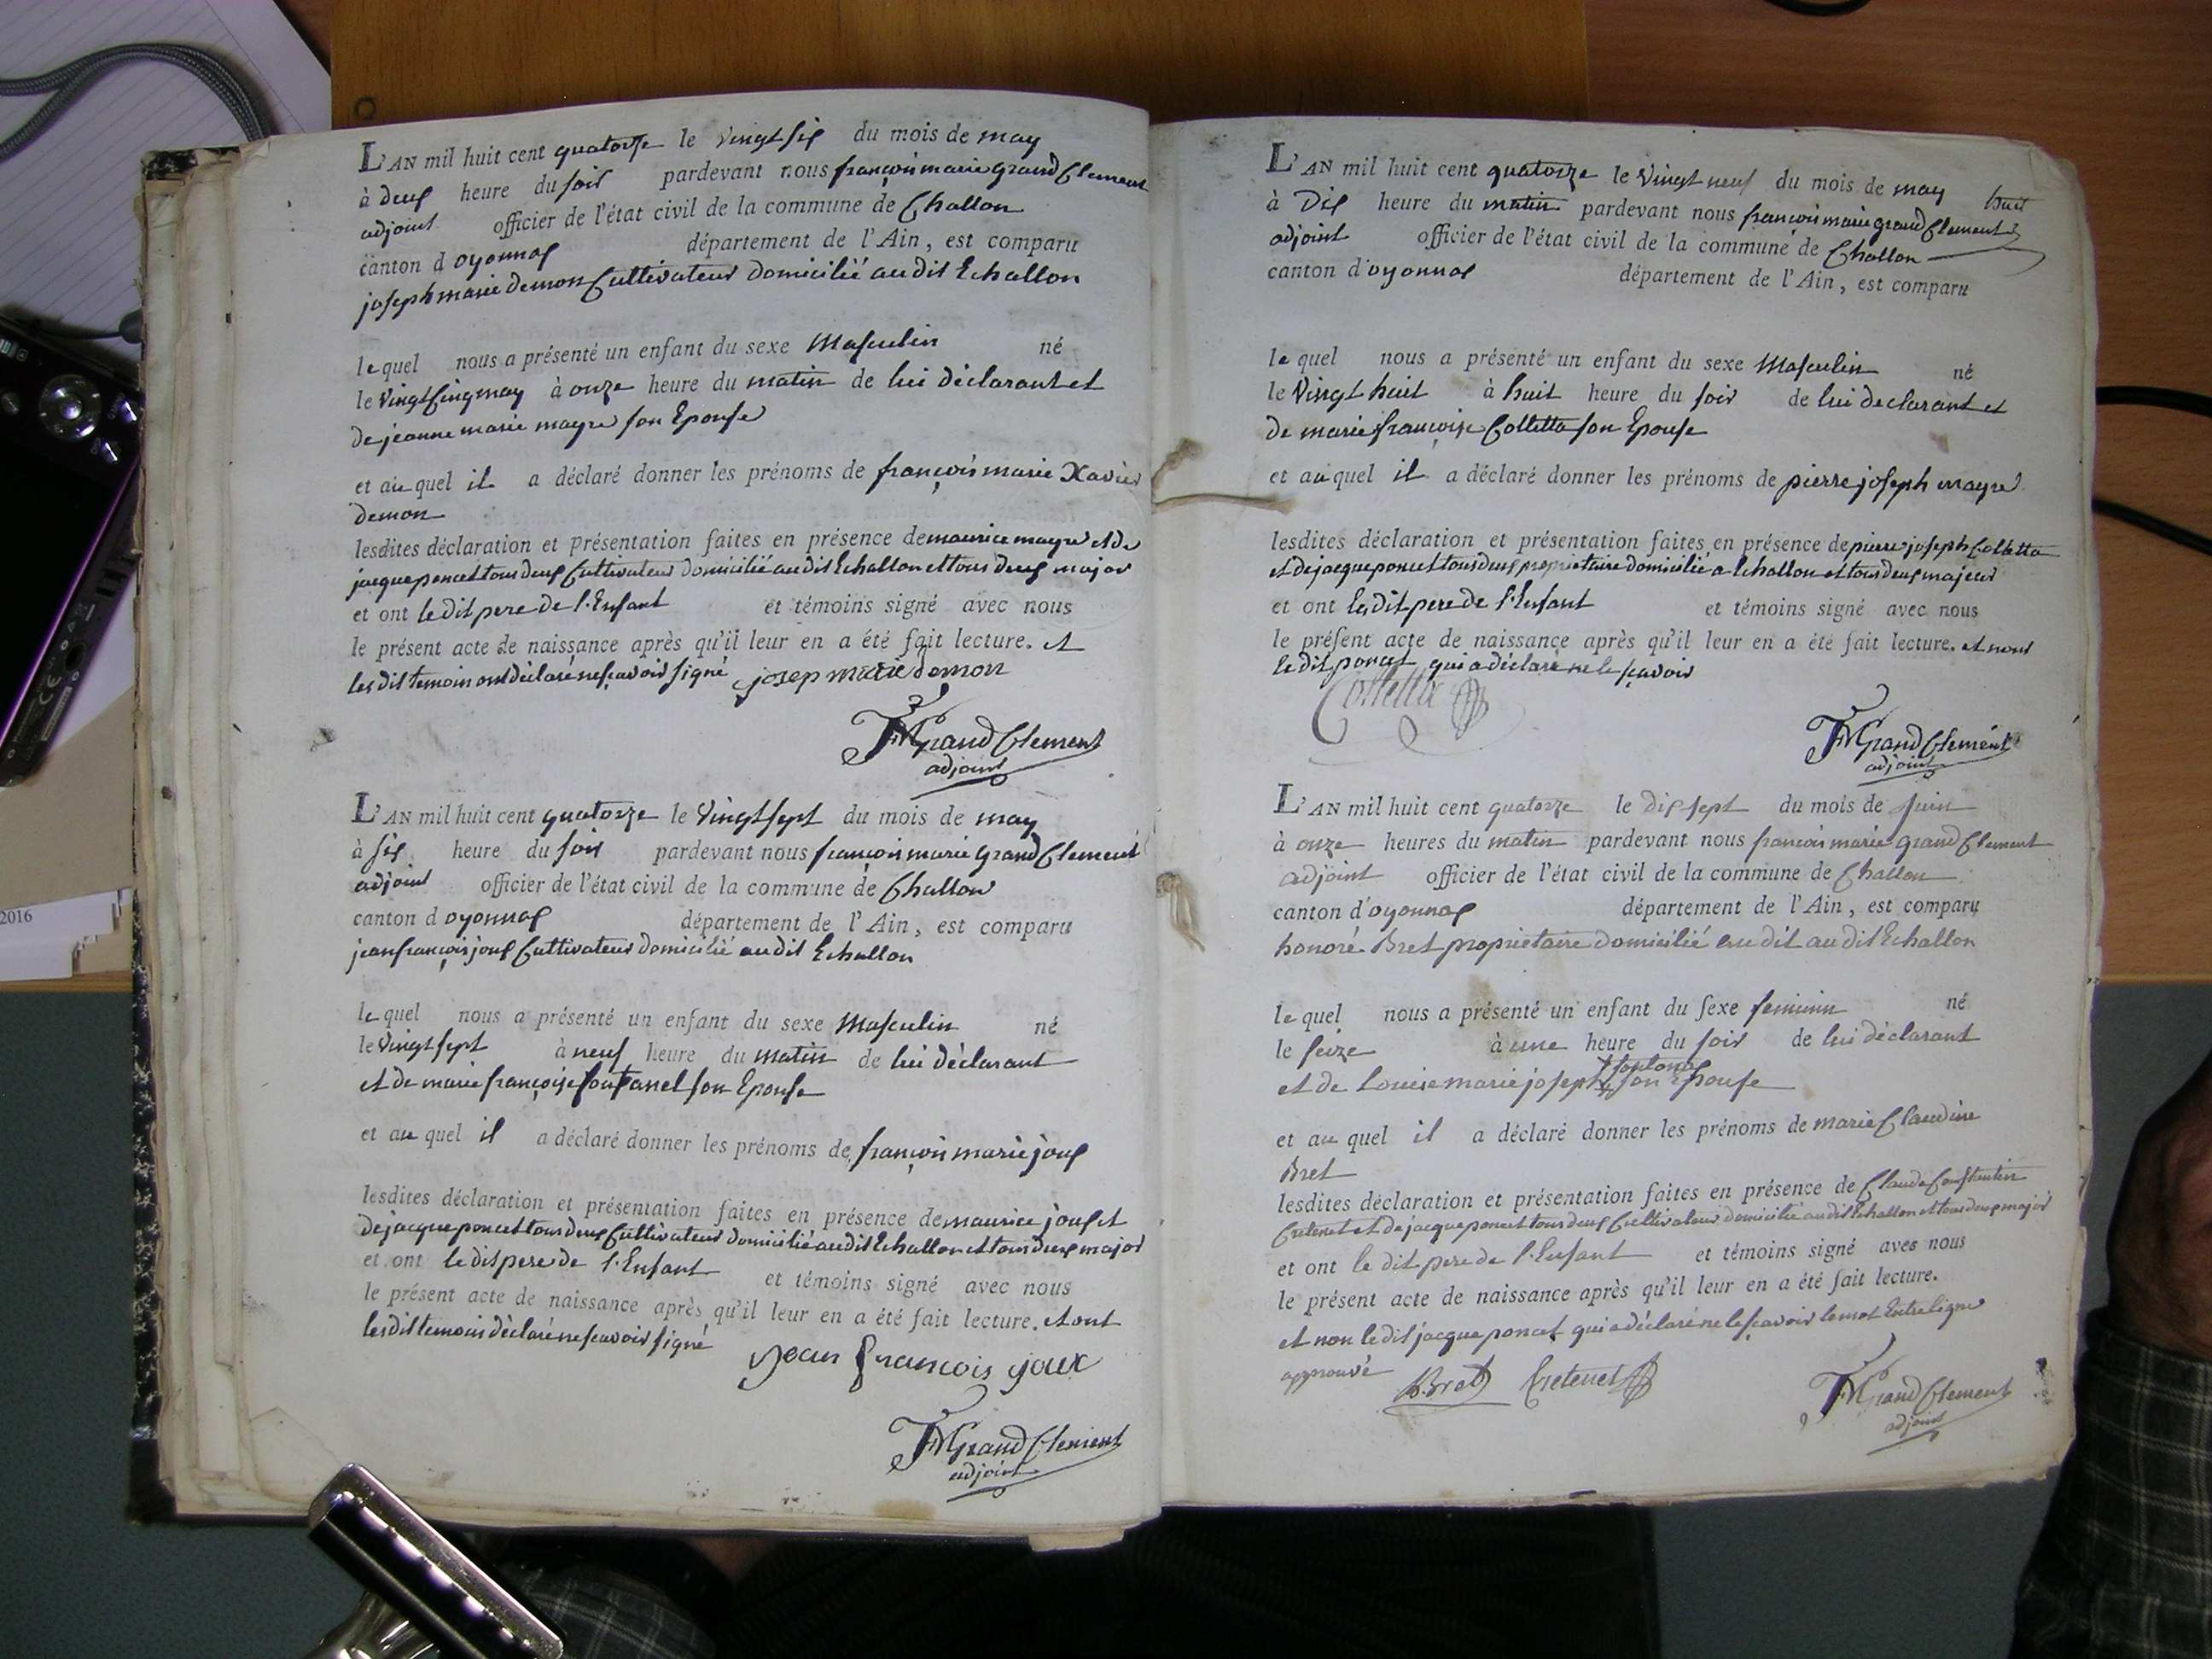 L'AN mil huit cent quatorze le vingt six du mois de may
à deux heure du soir pardevant nous françois marie grand Clement
adjoint officier de l'état civil de la commune de Challon
canton d oyonnax département de l'Ain, est comparu
joseph marie demon Cultivateur domicilié au dit Echallon
lequel nous a présenté un enfant du sexe Masculin né
le vingt cinq may à onze heure du matin de lui déclarant et
de jeanne marie mayre son Epouse
et au quel il a déclaré donner les prénoms de françois marie Xavier
demon
lesdites déclaration et présentation faites en présence de maurice mayre et de
jacque poncet tous deux Cultivateur domicilié au dit Echallon et tous deux major
et ont le dit pere de l'Enfant et témoins signé avec nous
le présent acte de naissance après qu'il leur en a été fait lecture. et
les dit temoin ont déclaré ne sçavoir signé josep marie demon
FMGrand Clement
adjoint
L'AN mil huit cent quatorze le vingt sept du mois de may
à six heure du soir pardevant nous françois marie grand Clement
adjoint officier de l'état civil de la commune de Challon
canton d oyonnax département de l'Ain, est comparu
jean françois joux Cultivateur domicilié au dit Echallon
lequel nous a présenté un enfant du sexe Masculin né
le vingt sept à neuf heure du matin de lui déclarant
et de marie françoise fontanel son Epouse
et au quel il a déclaré donner les prénoms de françois marie joux
lesdites déclaration et présentation faites en présence de maurice joux et
de jacque poncet tous deux Cultivateur domicilié au dit Echallon et tous deux major
et ont le dit pere de l'Enfant et témoins signé avec nous
le présent acte de naissance après qu'il leur en a été fait lecture. et ont
les dit temoin déclaré ne sçavoir signé
jean francois joux
FMGrand Clement
adjoint
L'AN mil huit cent quatorze le vingt neuf du mois de may huit
à Dix heure du matin pardevant nous françois marie grand Clement
adjoint officier de l'état civil de la commune de Challon
canton d'oyonnax département de l'Ain, est comparu
lequel nous a présenté un enfant du sexe Masculin né
le vingt huit à huit heure du soir de lui declarant et
de marie françoise Colletta son Epouse
et au quel il a déclaré donner les prénoms de pierre joseph mayre
lesdites déclaration et présentation faites en présence de pierre joseph Colletta
et de jacque poncet tous deux proprietaire domicilié a Echallon et tous deux majeur
et ont les dit pere de l'Enfant et témoins signé avec nous
le présent acte de naissance après qu'il leur en a été fait lecture. et nont
le dit poncet qui a déclaré ne le sçavoir
Colletta
FMGrand Clement
adjoint
L'AN mil huit cent quatorze le dix sept du mois de juin
à onze heures du matin pardevant nous françois marie grand Clement
adjoint officier de l'état civil de la commune de Challon
canton d'oyonnax département de l'Ain, est comparu
honoré Bret proprietaire domicilié au dit au dit Echallon
lequel nous a présenté un enfant du sexe feminin né
le seize à une heure du soir de lui déclarant
et de Louise marie joseph son Epouse
et au quel il a déclaré donner les prénoms de marie Claudine
Bret
lesdites déclaration et présentation faites en présence de Claude Constantin
Cretenet et de jacque poncet tous deux Cultivateur domicilié au dit Echallon et tous deux major
et ont le dit pere de l'Enfant et témoins signé avec nous
le présent acte de naissance après qu'il leur en a été fait lecture.
et non le dit jacque poncet qui a déclaré ne le sçavoir le mot Entre ligne
approuvé Bret Cretenet
FMGrand Clement
adjoint
2016